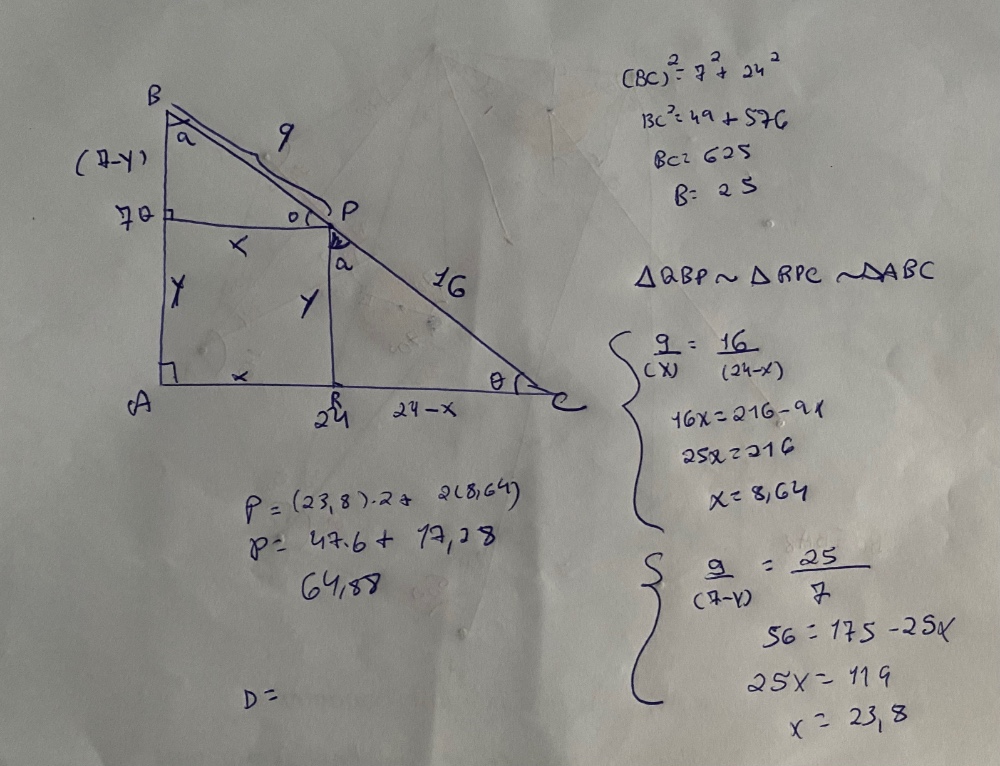 B
a
9
(7-y)
7Q
θ
P
x
a
y
y
16
A
x
R
24
24-x
θ
C
(BC)²=7²+ 24²
BC²=49+576
BC= 625
B= 25
△QBP ~ △RPC ~ △ABC
9/(x) = 16/(24-x)
16x=216-9x
25x=216
x=8,64
9/(7-y) = 25/7
56 = 175 -25x
25x= 119
x= 23,8
P=(23,8)·2+ 2(8,64)
P= 47.6+ 17,28
64,88
D=